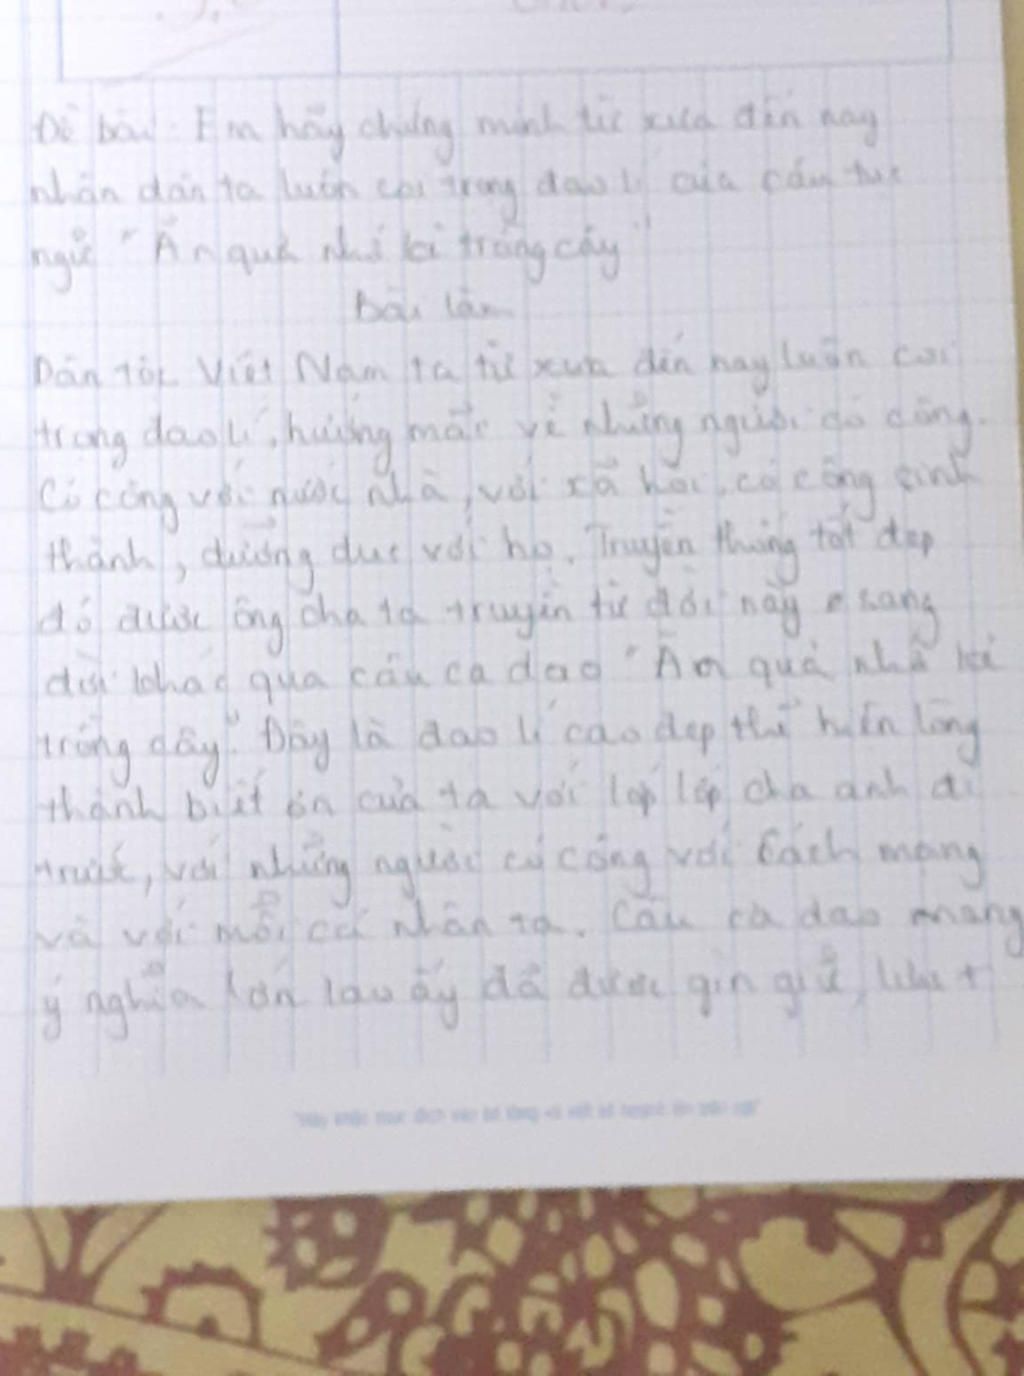 Đề bài: Em hãy chứng minh từ xưa đến nay
nhân dân ta luôn coi trọng đạo lí của câu tục
ngữ "Ăn quả nhớ kẻ trồng cây"
Bài làm
Dân tộc Việt Nam ta từ xưa đến nay luôn coi
trọng đạo lí, hướng mắt về những người có công.
Có công với nước nhà, với xã hội, có công sinh
thành, dưỡng dục với họ. Truyền thống tốt đẹp
đó được ông cha ta truyền từ đời này sang
đời khác qua câu ca dao "Ăn quả nhớ kẻ
trồng cây". Đây là đạo lí cao đẹp thể hiện lòng
thành biết ơn của ta với lớp lớp cha anh đi
trước, với những người có công với Cách mạng
và với mỗi cá nhân ta. Câu ca dao mang
ý nghĩa lớn lao ấy đã được gìn giữ,